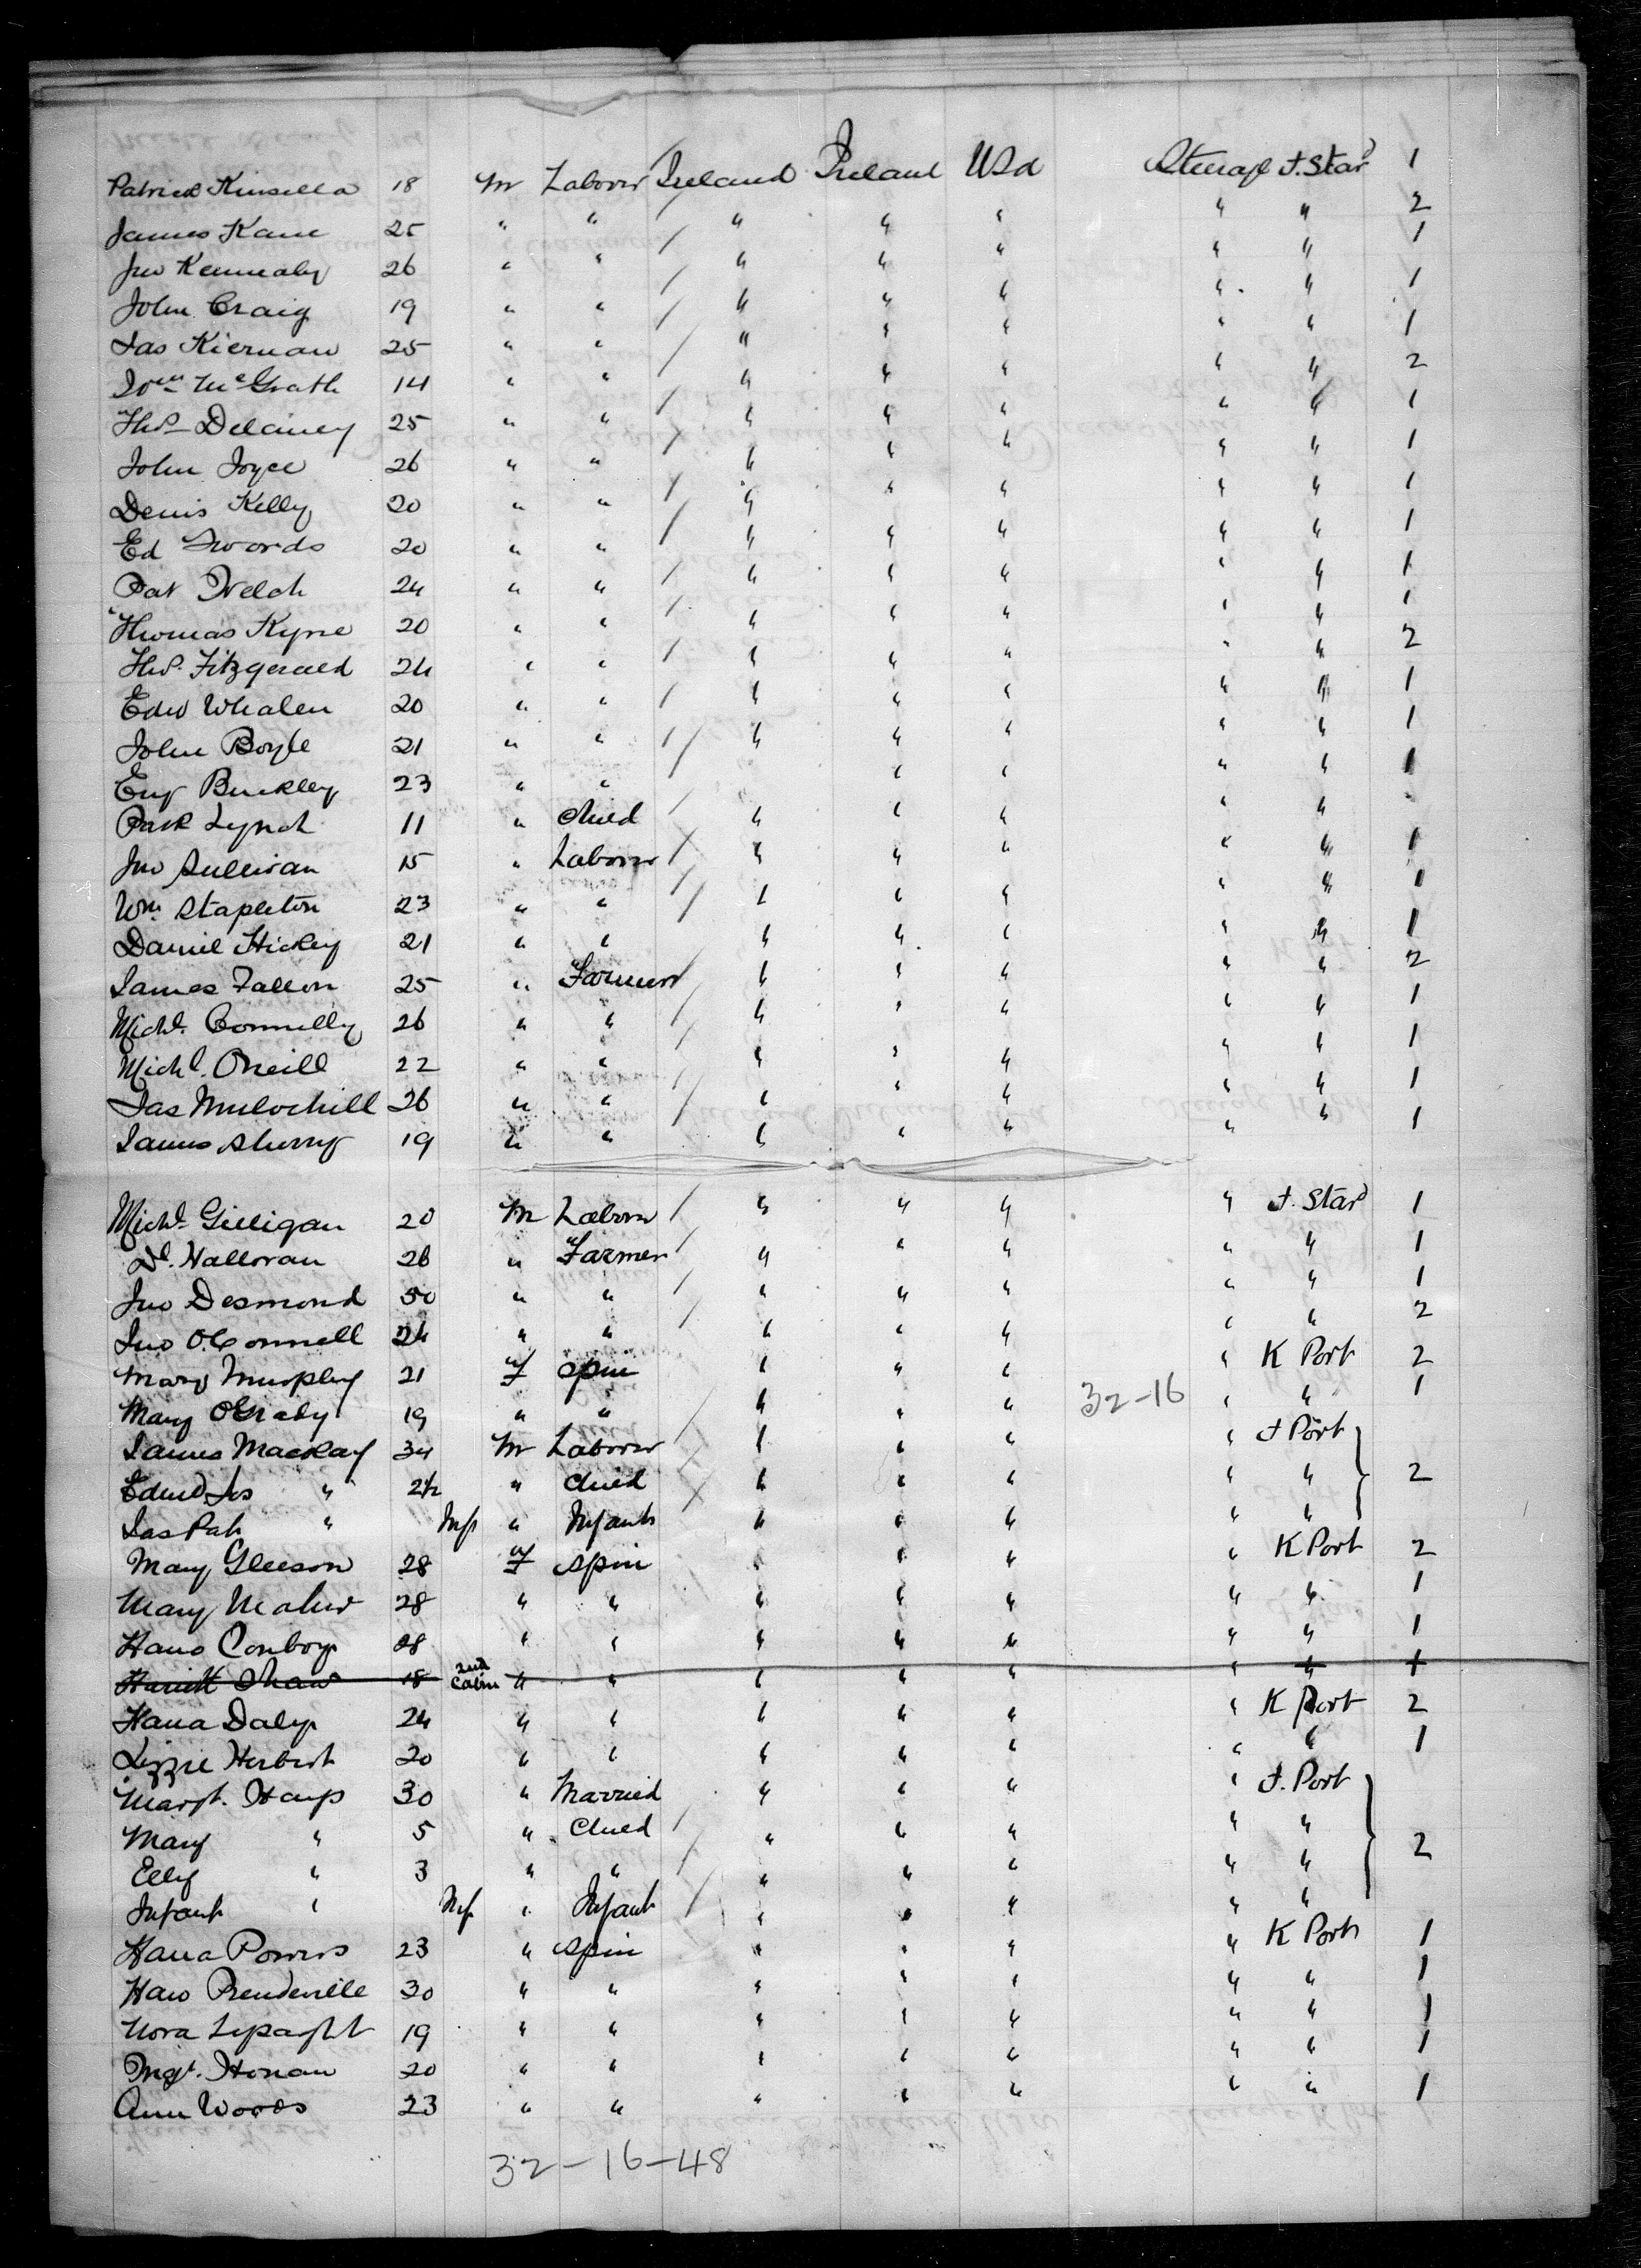 Patrick Kinsella 18 M Laborer Ireland Ireland USA Steerage F. Star 1
James Kane 25 " " " " " " " 2
Jno Kennealy 26 " " " " " " " 1
John Craig 19 " " " " " " " 1
Jas Kiernan 25 " " " " " " " 1
Wm McGrath 14 " " " " " " " 2
Thos Delaney 25 " " " " " " " 1
John Joyce 26 " " " " " " " 1
Denis Kelly 20 " " " " " " " 1
Ed Swords 20 " " " " " " " 1
Pat Welch 24 " " " " " " " 1
Thomas Kyne 20 " " " " " " " 1
Thos. Fitzgerald 24 " " " " " " " 2
Edwd Whalen 20 " " " " " " " 1
John Boyle 21 " " " " " " " 1
Eug Buckley 23 " " " " " " 1
Patk Lynch 11 " Child " " " " "
Jno Sullivan 15 " Laborer " " " " " 1
Wm Stapleton 23 " " " " " " " 1
Daniel Hickey 21 " " " " " " " 1
James Fallon 25 " Farmer " " " " " 2
Michl. Connelly 26 " " " " " " " 1
Michl. Oneill 22 " " " " " " " 1
Jas Mulvihill 26 " " " " " " " 1
James Sherry 19 " " " " " " " 1
Michl. Gilligan 20 M Laborer " " " " F. Star 1
Dl. Halloran 26 " Farmer " " " " " 1
Jno Desmond 50 " " " " " " " 1
Jno O'Connell 24 " " " " " " " 2
Mary Murphy 21 F Spin " " " " K Port 2
Mary OGrady 19 " " " " " 32-16 " " 1
James Mackay 34 M Laborer " " " " F Port
Edwd Jos " 2½ " Child " " " " " 2
Jas Pat " Inf " Infant " " " " "
Mary Gleeson 28 F Spin " " " " K Port 2
Mary Maher 28 " " " " " " " 1
Hano Conboy 28 " " " " " " " 1
Harriett Shaw 18 2nd Cabin " " " " " " " 1
Hana Daly 24 " " " " " " K Port 2
Lizzie Herbert 20 " " " " " " " 1
Margt. Hays 30 " Married " " " " F. Port
Mary " 5 " Child " " " " " 2
Elly " 3 " " " " " " "
Infant " Inf " Infant " " " " "
Hana Powers 23 " Spin " " " " K Port 1
Hano Prendeville 30 " " " " " " " 1
Nora Lysaght 19 " " " " " " " 1
Mgt. Honan 20 " " " " " " " 1
Ann Woods 23 " " " " " " " 1
32-16-48